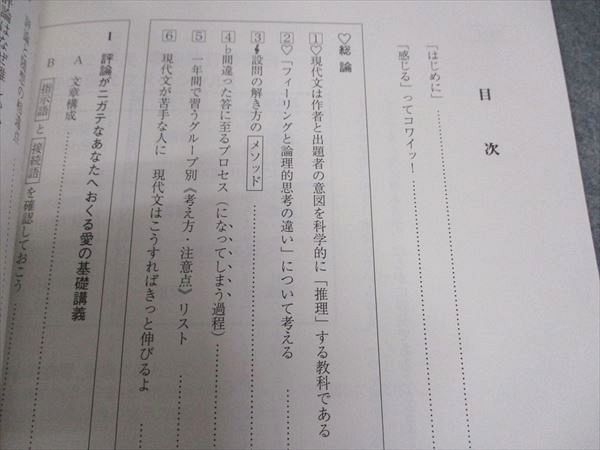 目次
「はじめに」
「感じる」ってコワイッ！
♡総論
1♡現代文は作者と出題者の意図を科学的に「推理」する教科である
2♡「フィーリングと論理的思考の違い」について考える
3 設問の解き方のメソッド
4♭間違った答に至るプロセス（になってしまう過程）
5 一年間で習うグループ別《考え方・注意点》リスト
6 現代文が苦手な人に 現代文はこうすればきっと伸びるよ
I 評論がニガテなあなたへおくる愛の基礎講義
A 文章構成
B 指示語と接続語を確認しておこう